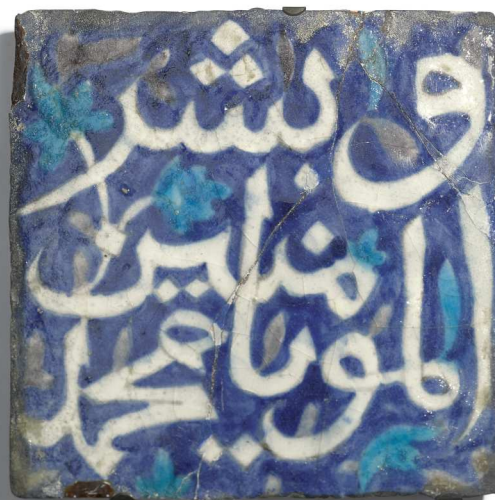 و بشر
المومنين
يا محمد